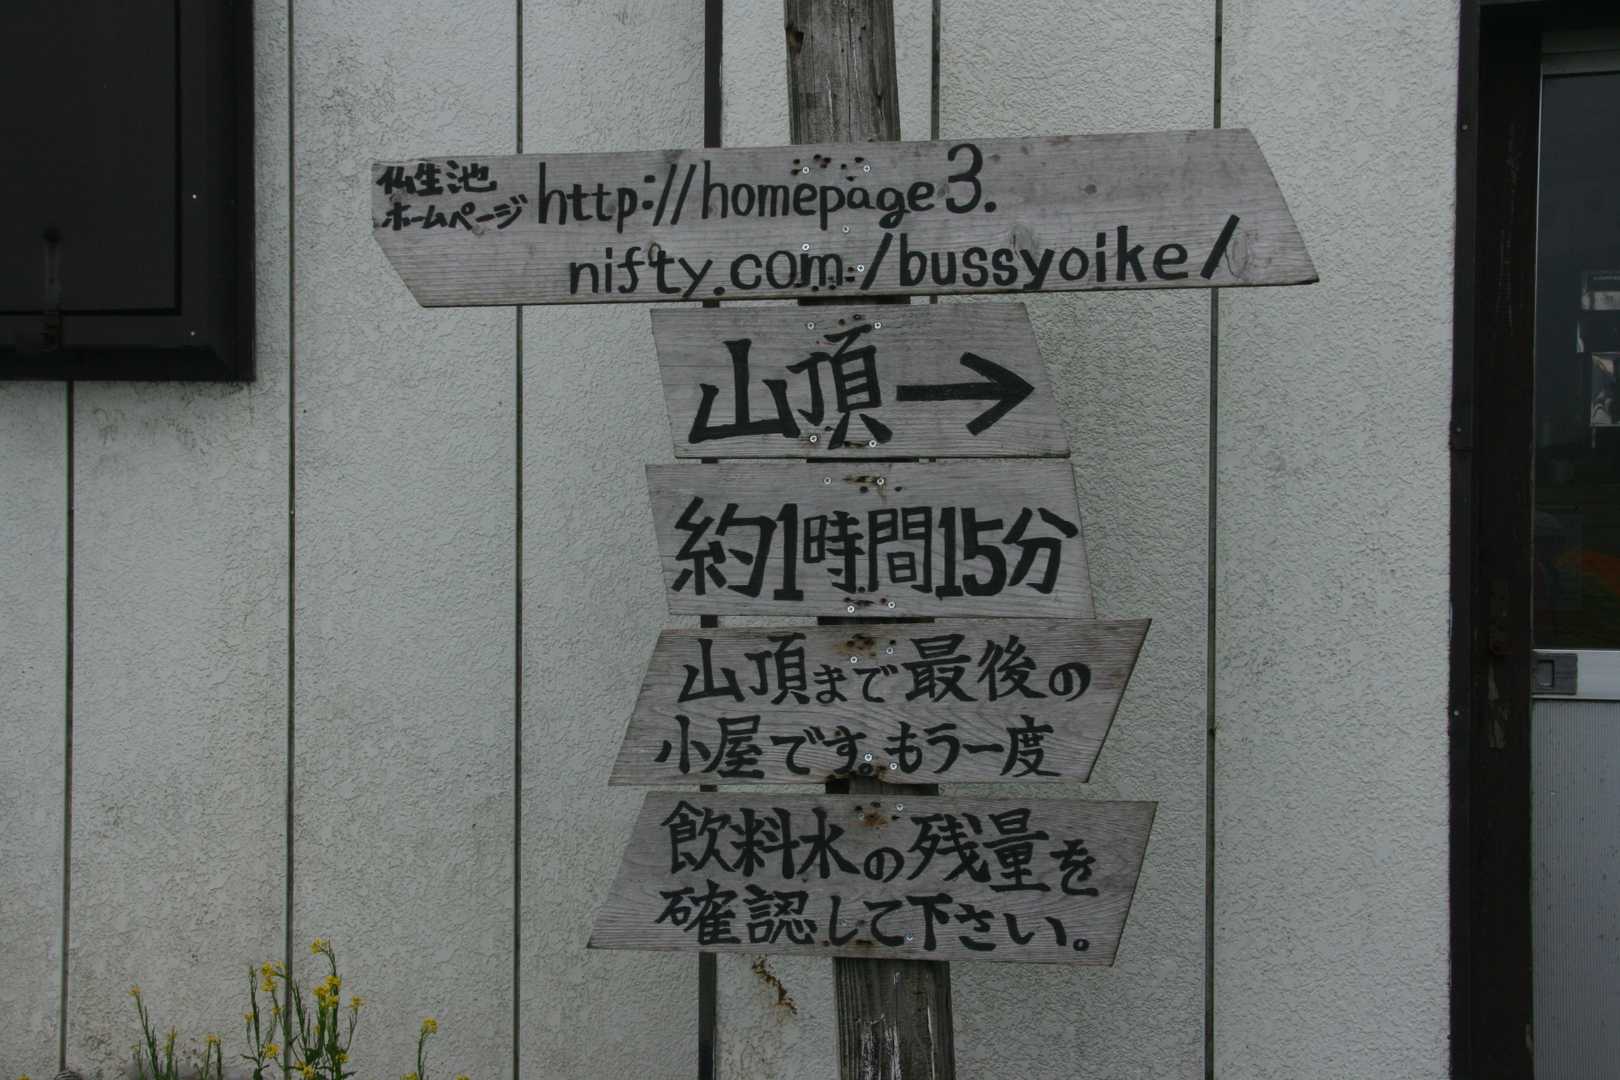 仏生池
ホームページ
http://homepage3.
nifty.com/bussyoike/
山頂→
約1時間15分
山頂まで最後の
小屋です。もう一度
飲料水の残量を
確認して下さい。